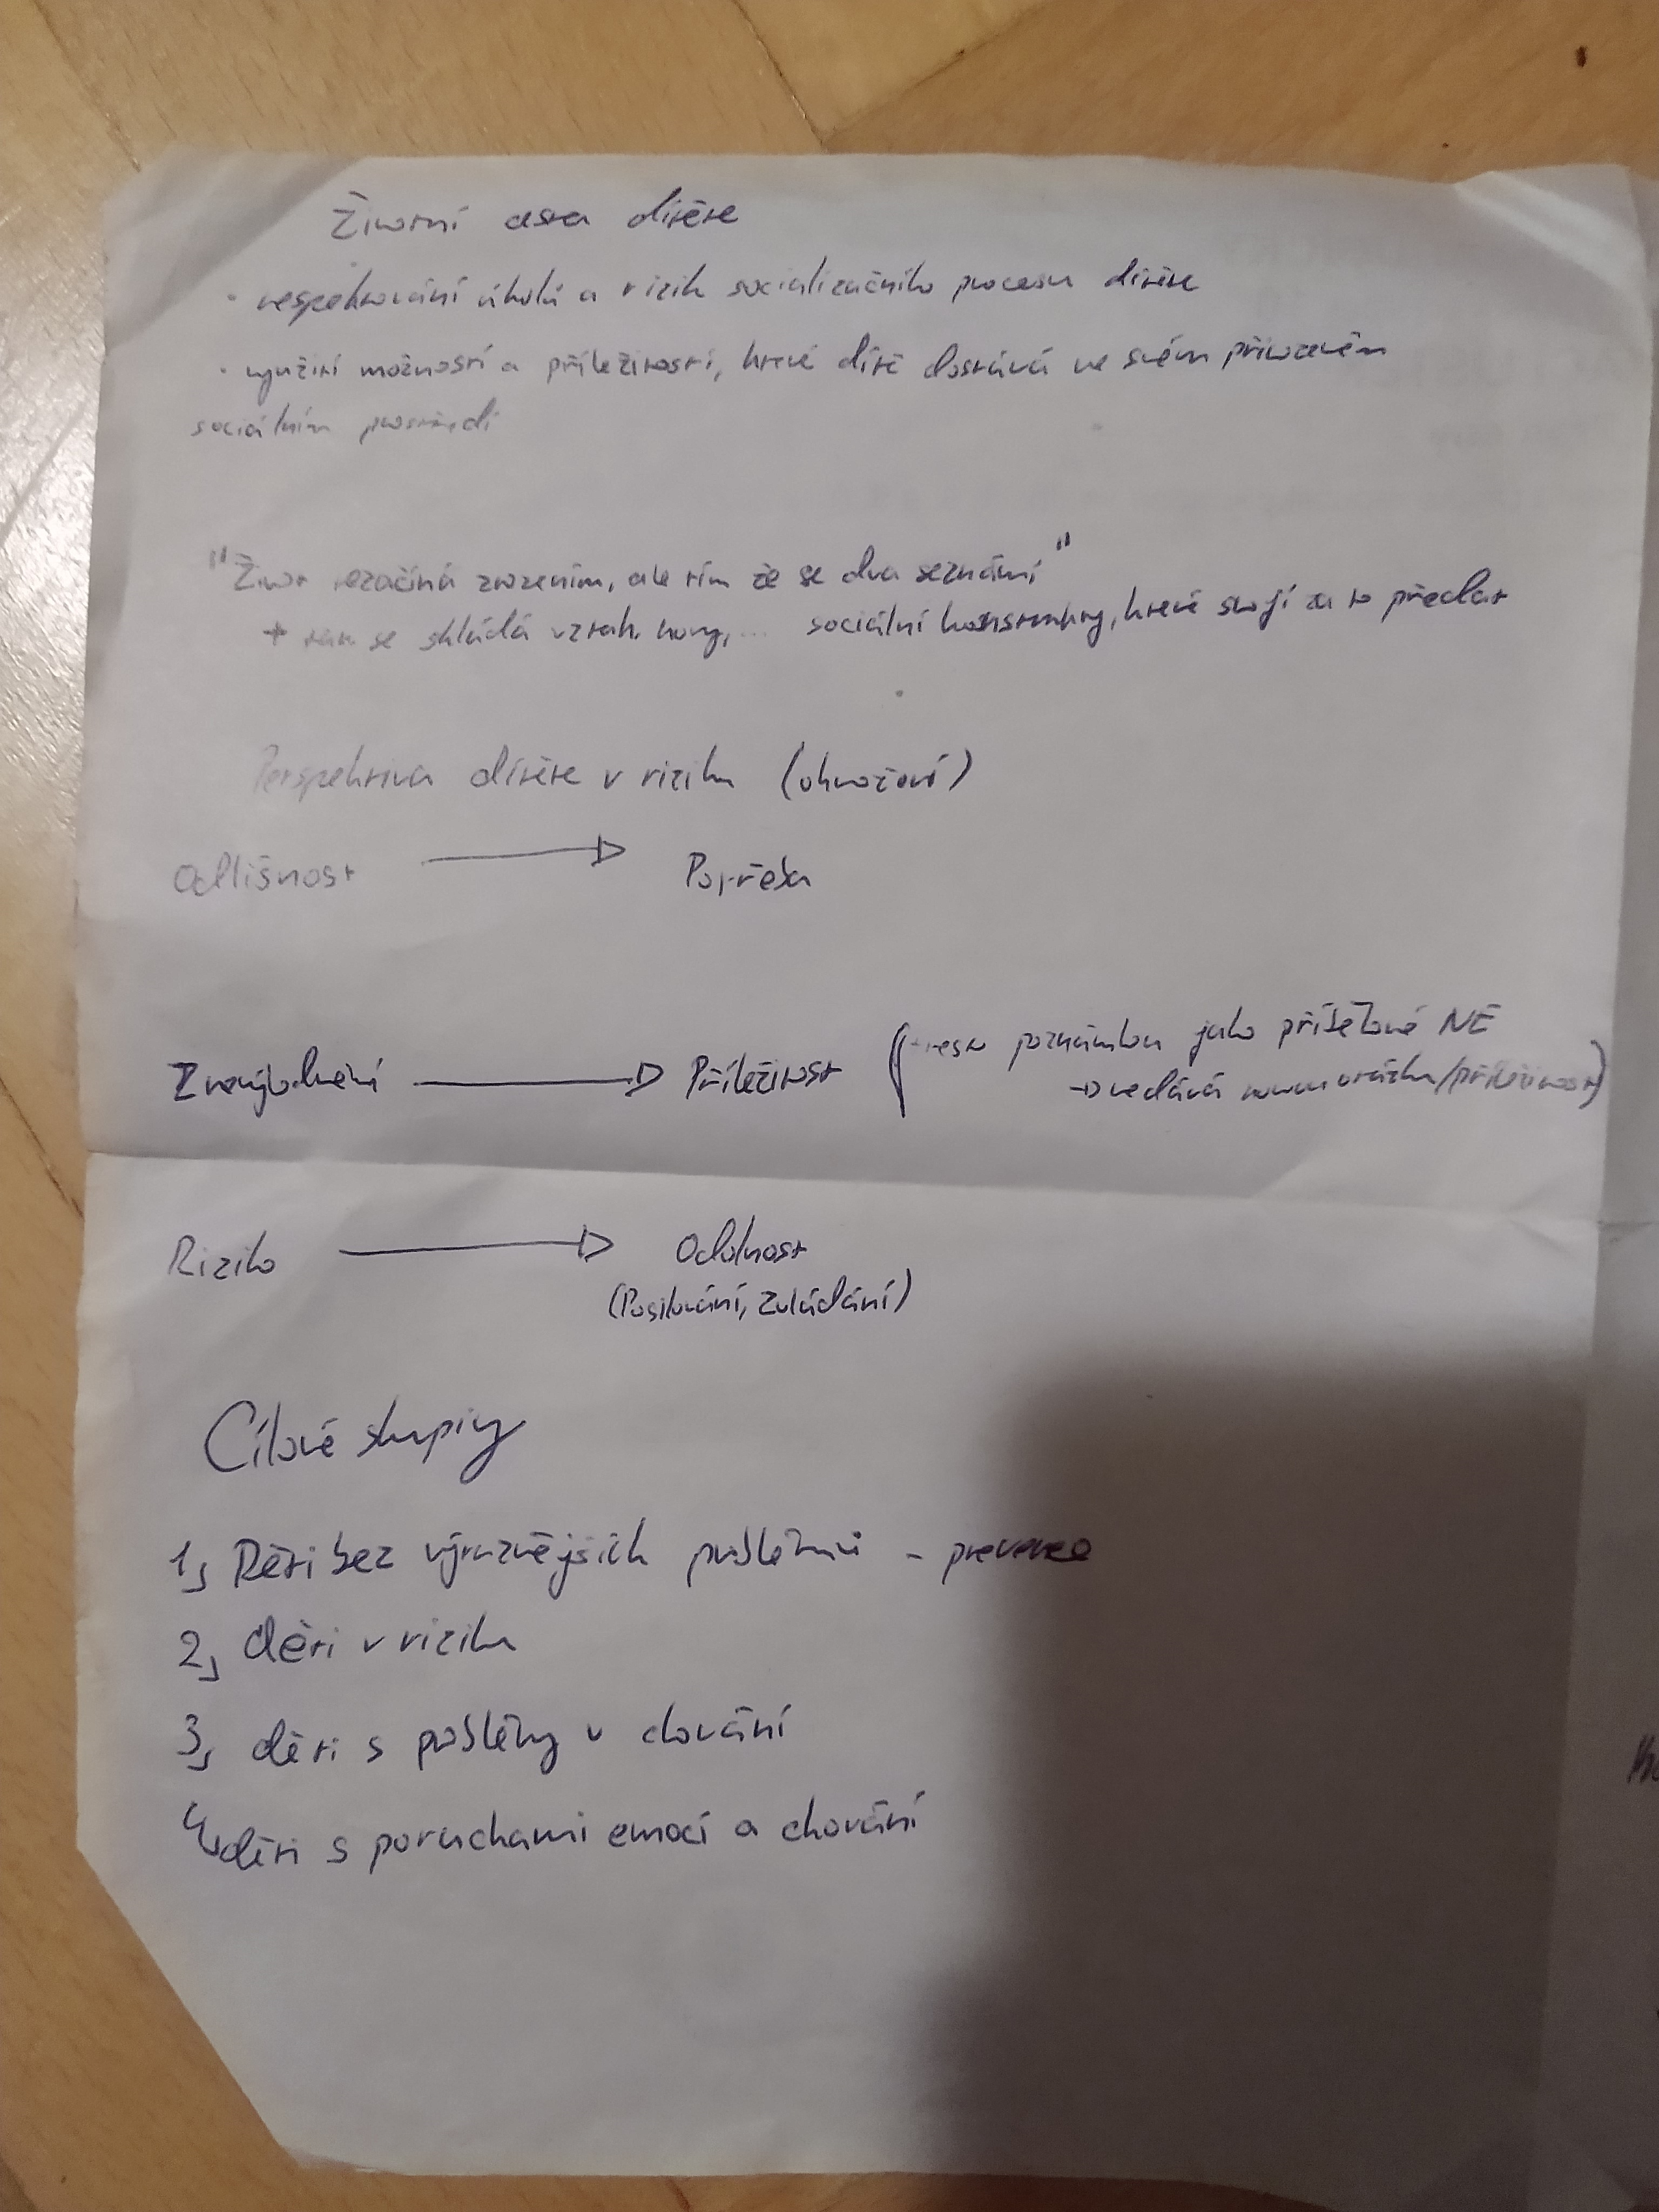 Životní cesta dítěte
· respektování úkolů a rizik socializačního procesu dítěte
· využití možností a příležitostí, které dítě dostává ve svém přirozeném
sociálním prostředí
"Život nezačíná zrozením, ale tím že se dva seznámí"
+ tam se skládá vztah, ... sociální konstrukty, které stojí za to předat
Perspektiva dítěte v riziku (ohrožení)
Odlišnost → Potřeba
Znevýhodnění → Příležitost ( poznámka jako NE
→ nedává novou otázku/příležitost)
Riziko → Odolnost
(Posilování, zvládání)
Cílové skupiny
1, Děti bez výraznějších problémů - prevence
2, děti v riziku
3, děti s problémy v chování
4, děti s poruchami emocí a chování